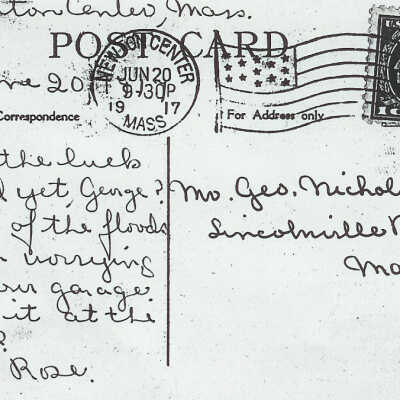 ton Center, Mass.
POST CARD
NEWTON CENTER
JUN 20
9-30P
19 17
MASS
ne 20
Correspondence
For Address only
the luck
yet George?
of the floods
worrying
our garage
it at the
?
Rose.
Mr. Geo. Nichol
Lincolnville
Ma